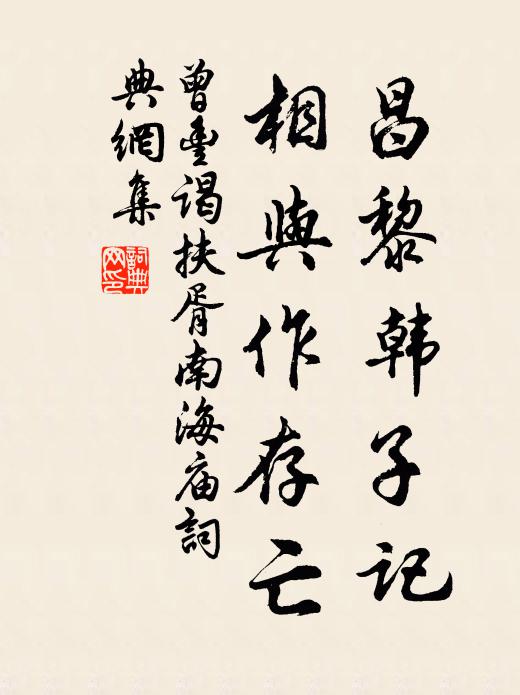 昌黎韩子记
相與作存亡
曾豐谒扶胥南海庙詞
典網集
詞典网印